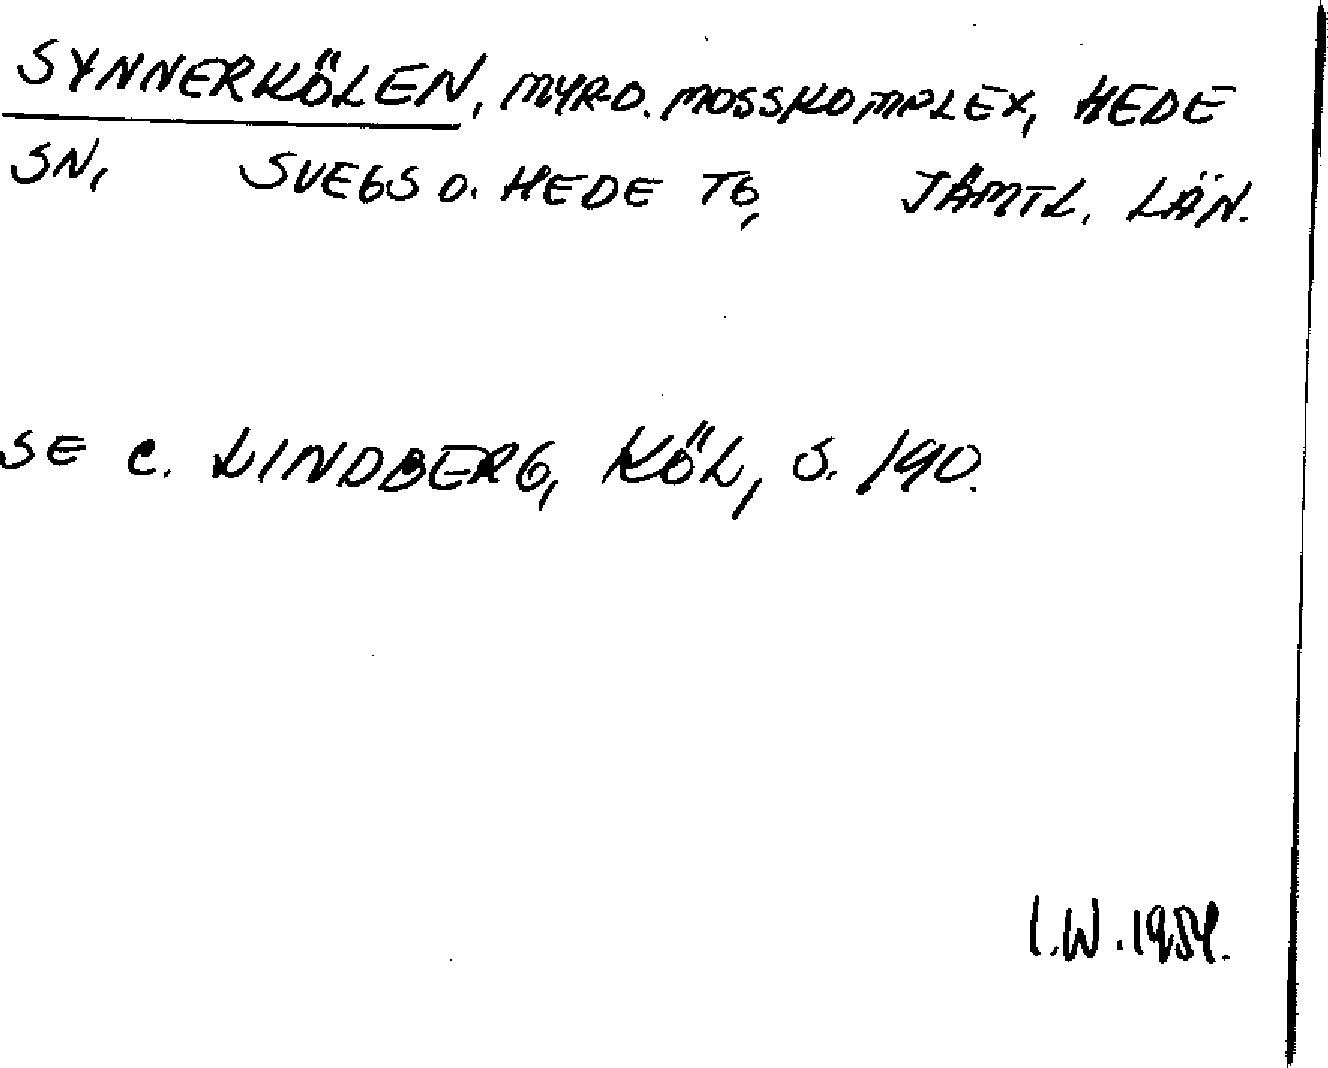 SYNNERKÖLEN, MYR-O. MOSSKOMPLEX, HEDE
SN, SVEGS O. HEDE TG, JÄMTL. LÄN.
SE C. LINDBERG, KÖL, S. 190.
I.W. 1954.